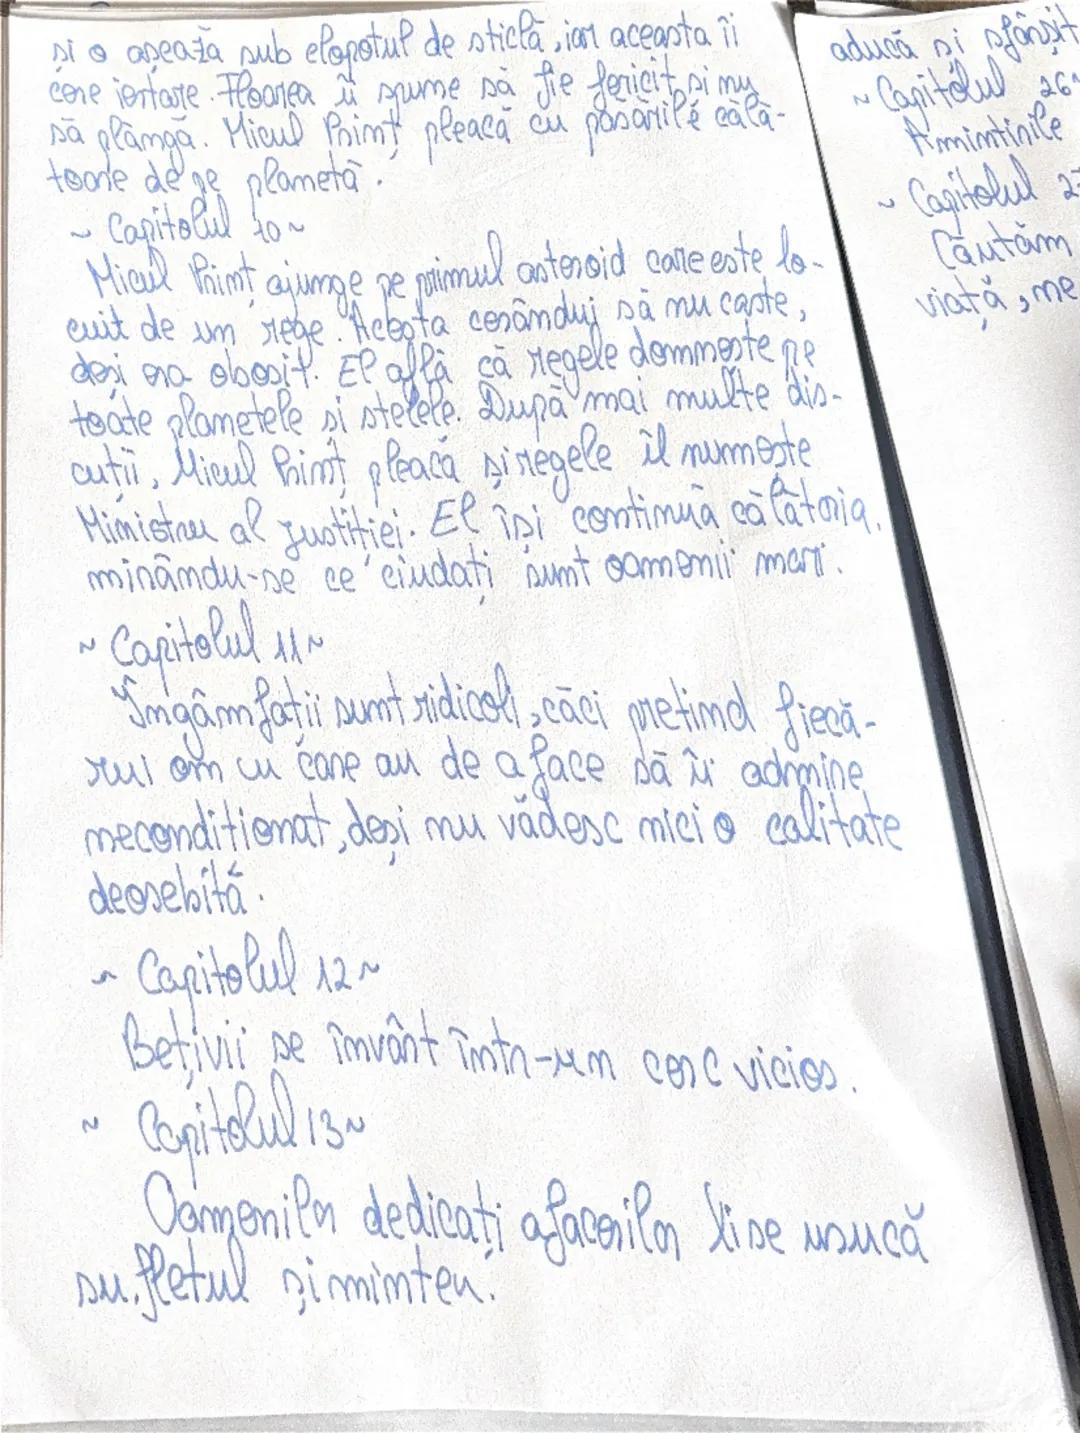 și o așează sub clopotul de sticlă, iar aceasta îi
cere iertare. Floarea îi spune să fie fericit și nu
să plângă. Micul Prinț pleacă cu păsările călă-
toare de pe planetă.
~ Capitolul 10 ~
Micul Prinț ajunge pe primul asteroid care este lo-
cuit de un rege. Acesta cerându-i să nu caște,
deși era obosit. El află că regele domnește pe
toate planetele și stelele. După mai multe dis-
cuții, Micul Prinț pleacă și regele îl numește
Ministru al Justiției. El își continuă călătoria,
minându-se ce ciudați sunt oamenii mari.
~ Capitolul 11 ~
Îngâmfații sunt ridicoli, căci pretind fiecă-
rui om cu care au de a face să îi admire
necondiționat, deși nu vădesc nici o calitate
deosebită.
~ Capitolul 12 ~
Bețivii se învârt într-un cerc vicios.
~ Capitolul 13 ~
Oamenilor dedicați afacerilor li se usucă
sufletul și mintea.
aducă și sfârșit
~ Capitolul 26
Amintirile
~ Capitolul 27
Căutăm
viață, me